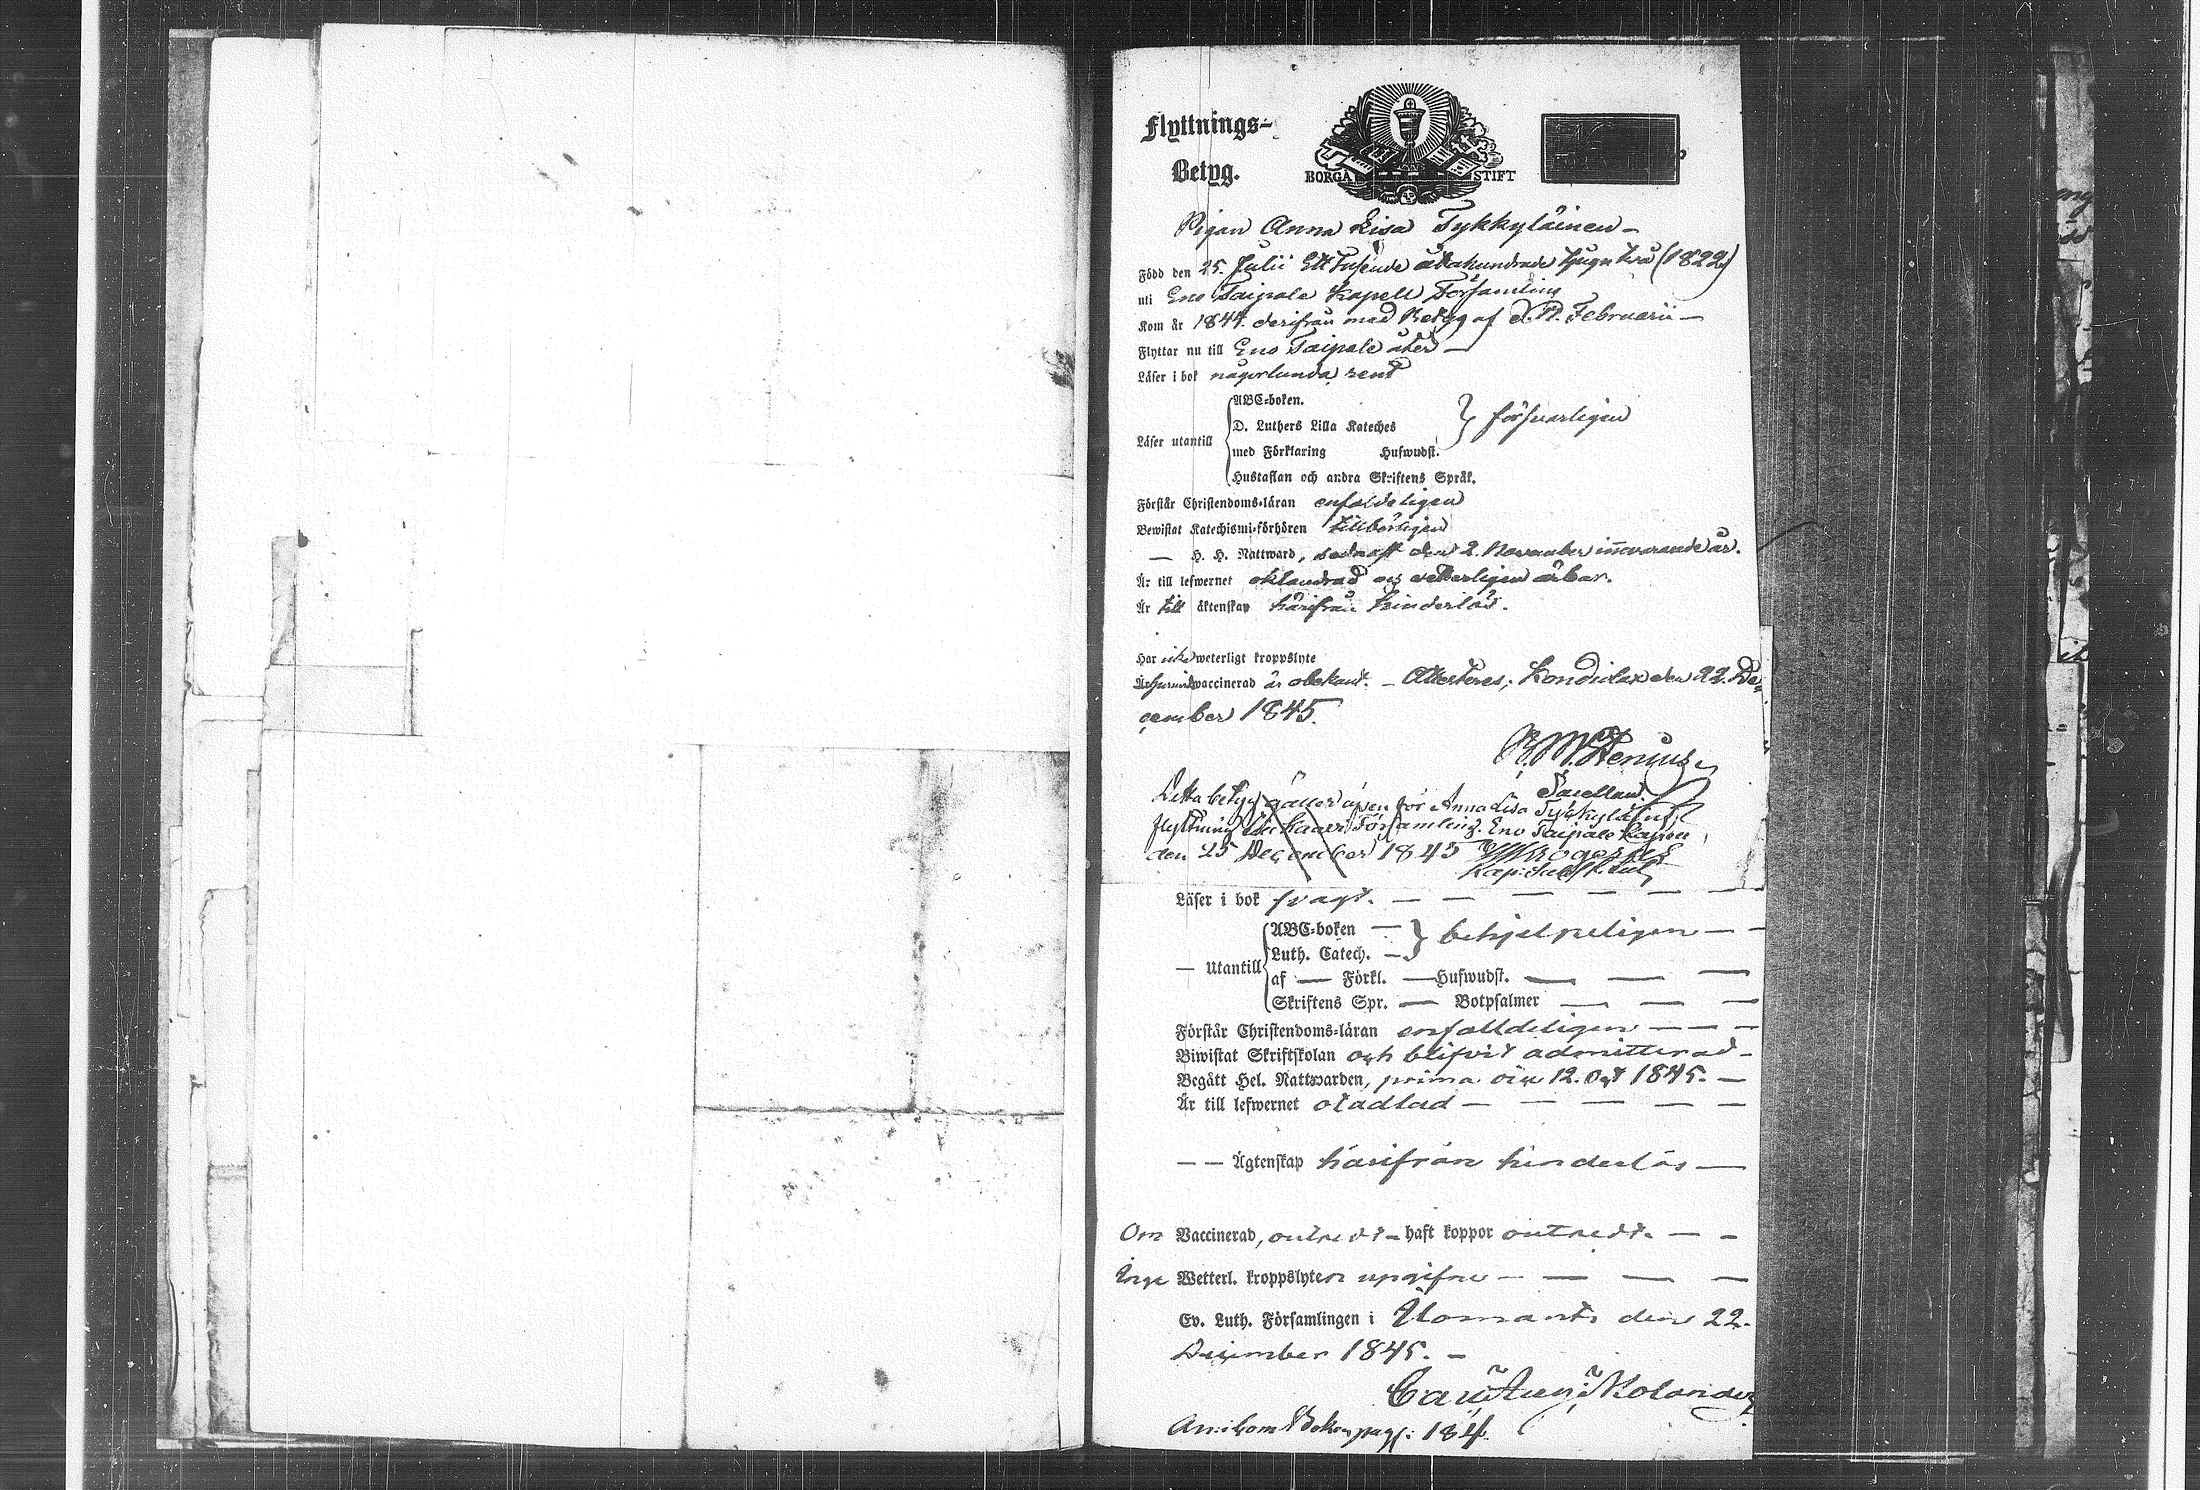 Flyttnings-
Betyg.
BORGÅ STIFT
Pigan Anna Lisa Tykkyläinen —
Född den 25. Julii Ett tusende åttahundrade tjugu två (1822)
uti Eno Taipale Kapell Församling
Kom år 1844. derifrån med Betyg af d. Februarii —
Flyttar nu till Eno Taipale åter —
Läser i bok någorlunda rent
Läser utantill
ABC-boken.
D. Luthers Lilla Kateches
med Förklaring Hufwudst.
Hustaflan och andra Skriftens Språk.
} försvarligen
Förstår Christendoms-läran enfaldeligen
Bewistat Katechismi-förhören tillbörligen
— H. H. Nattward, sednast den 2. November innevarande år.
Är till lefwernet oklandrad och veterligen ärbar.
Är till äktenskap härifrån hinderlös.
Har icke weterligt kroppslyte
vaccinerad är obekant. — Attesteras, Kondiolax den 22. De-
cember 1845.
Sacellan.
Detta betyg gäller äfven för Anna Lisa Tykkyläinens
flyttning till Kaavi Församling. Eno Taipale Kapell
den 25 December 1845
Läser i bok svagt. — — — — — —
— Utantill
ABC-boken —
Luth. Catech. —
} behjelpeligen — —
af — Förkl. — Hufwudst. — — —
Skriftens Spr. — Botpsalmer — — —
Förstår Christendoms-läran enfalldeligen — — —
Biwistat Skriftskolan och blifvit admitterad —
Begått Hel. Nattwarden, prima vice 12. Oct 1845. —
Är till lefwernet otadlad — — — — —
— — Ägtenskap härifrån hinderlös —
Om Vaccinerad, outredt — haft koppor outredt. — —
Inga Wetterl. kroppslyten uppgifne — — — —
Ev. Luth. Församlingen i Ilomants den 22.
December 1845. —
Molander
Boken pag. 184.